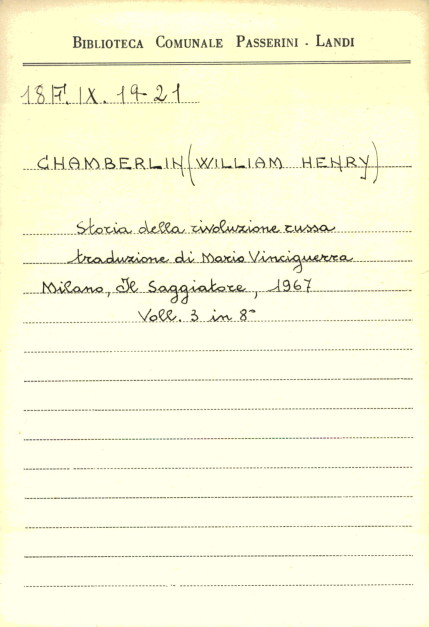 BIBLIOTECA COMUNALE PASSERINI - LANDI
18 F. IX. 19-21
CHAMBERLIN (WILLIAM HENRY)
Storia della rivoluzione russa
traduzione di Mario Vinciguerra
Milano, Il Saggiatore, 1967
Voll. 3 in 8°